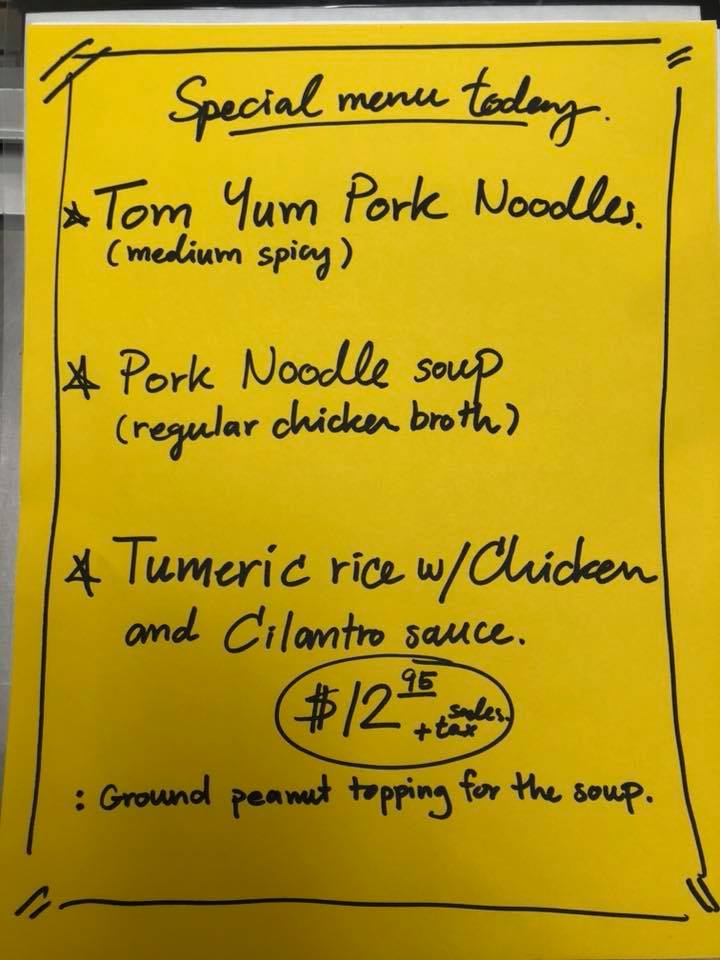 Special menu today.
☆ Tom Yum Pork Noodles.
(medium spicy)
☆ Pork Noodle soup
(regular chicken broth)
☆ Tumeric rice w/Chicken
and Cilantro sauce.
$12 95 + sales. tax
: Ground peanut topping for the soup.